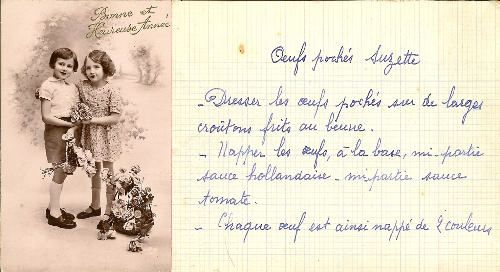 Bonne et
Heureuse Année
Œufs pochés Suzette
- Dresser les œufs pochés sur de larges
croûtons frits au beurre.
- Napper les œufs, à la base, mi-partie
sauce hollandaise - mi-partie sauce
tomate.
- Chaque œuf est ainsi nappé de 2 couleurs